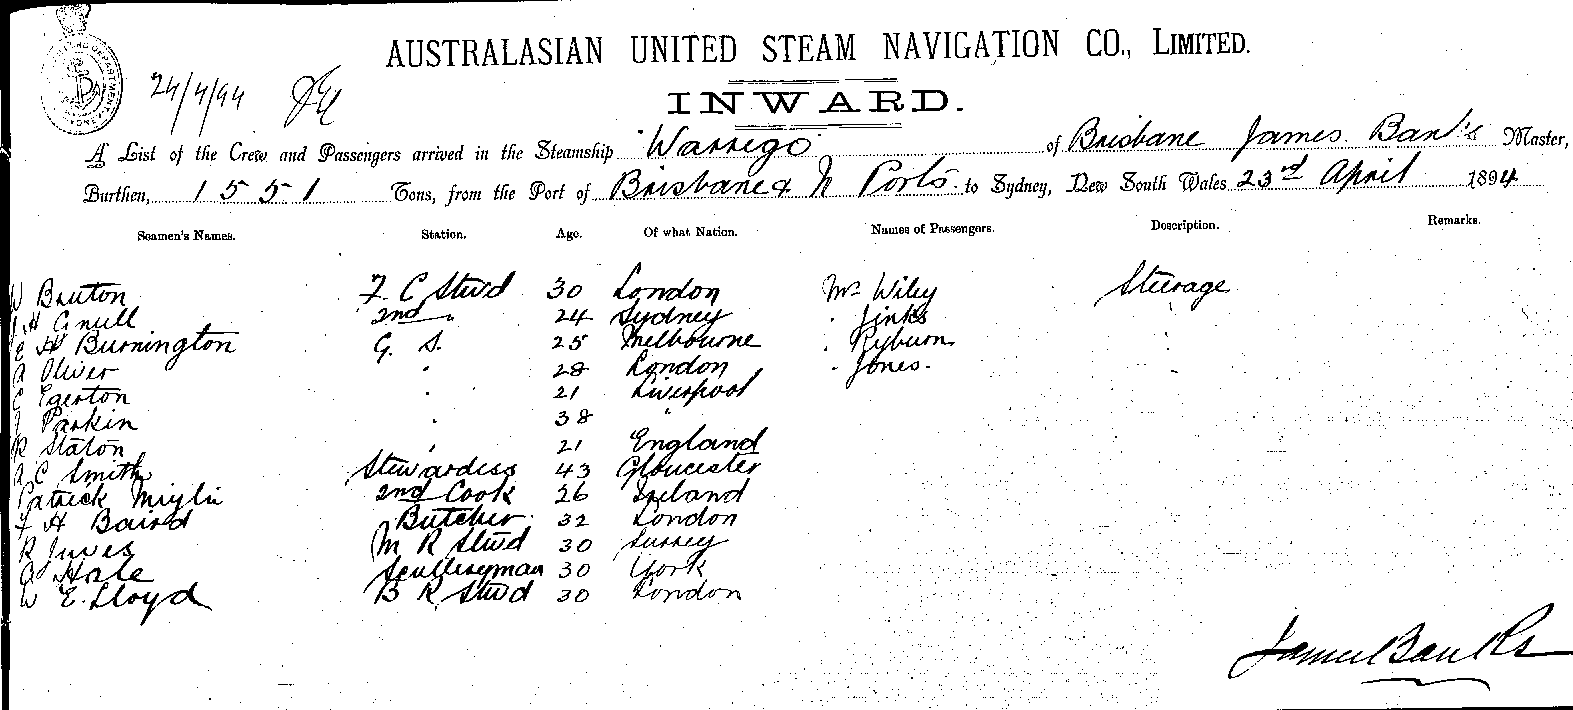 AUSTRALASIAN UNITED STEAM NAVIGATION CO., LIMITED.
24/4/94
INWARD.
A List of the Crew and Passengers arrived in the Steamship "Warrego" of Brisbane James Banks Master,
Burthen, 1551 Tons, from the Port of Brisbane & N Ports to Sydney, New South Wales 23rd April 1894
Seamen's Names. Station. Age. Of what Nation. Names of Passengers. Description. Remarks.
W Bruton F. C Stwd 30 London Mr Wiley Steerage
H 2nd " 24 Sydney " Jinks
E H Burnington G. S. 25 Melbourne " Ryburn
A Oliver " 28 London " Jones.
C Egerton " 21 Liverpool
J Parkin " 38 "
R Staton " 21 England
A C Smith Stewardess 43 Gloucester
Patrick 2nd Cook 26 Ireland
F H Baird Butcher 32 London
R M R Stwd 30 Surrey
A Hole Sculleryman 30 York
W E. Lloyd B R Stwd 30 London
James Banks